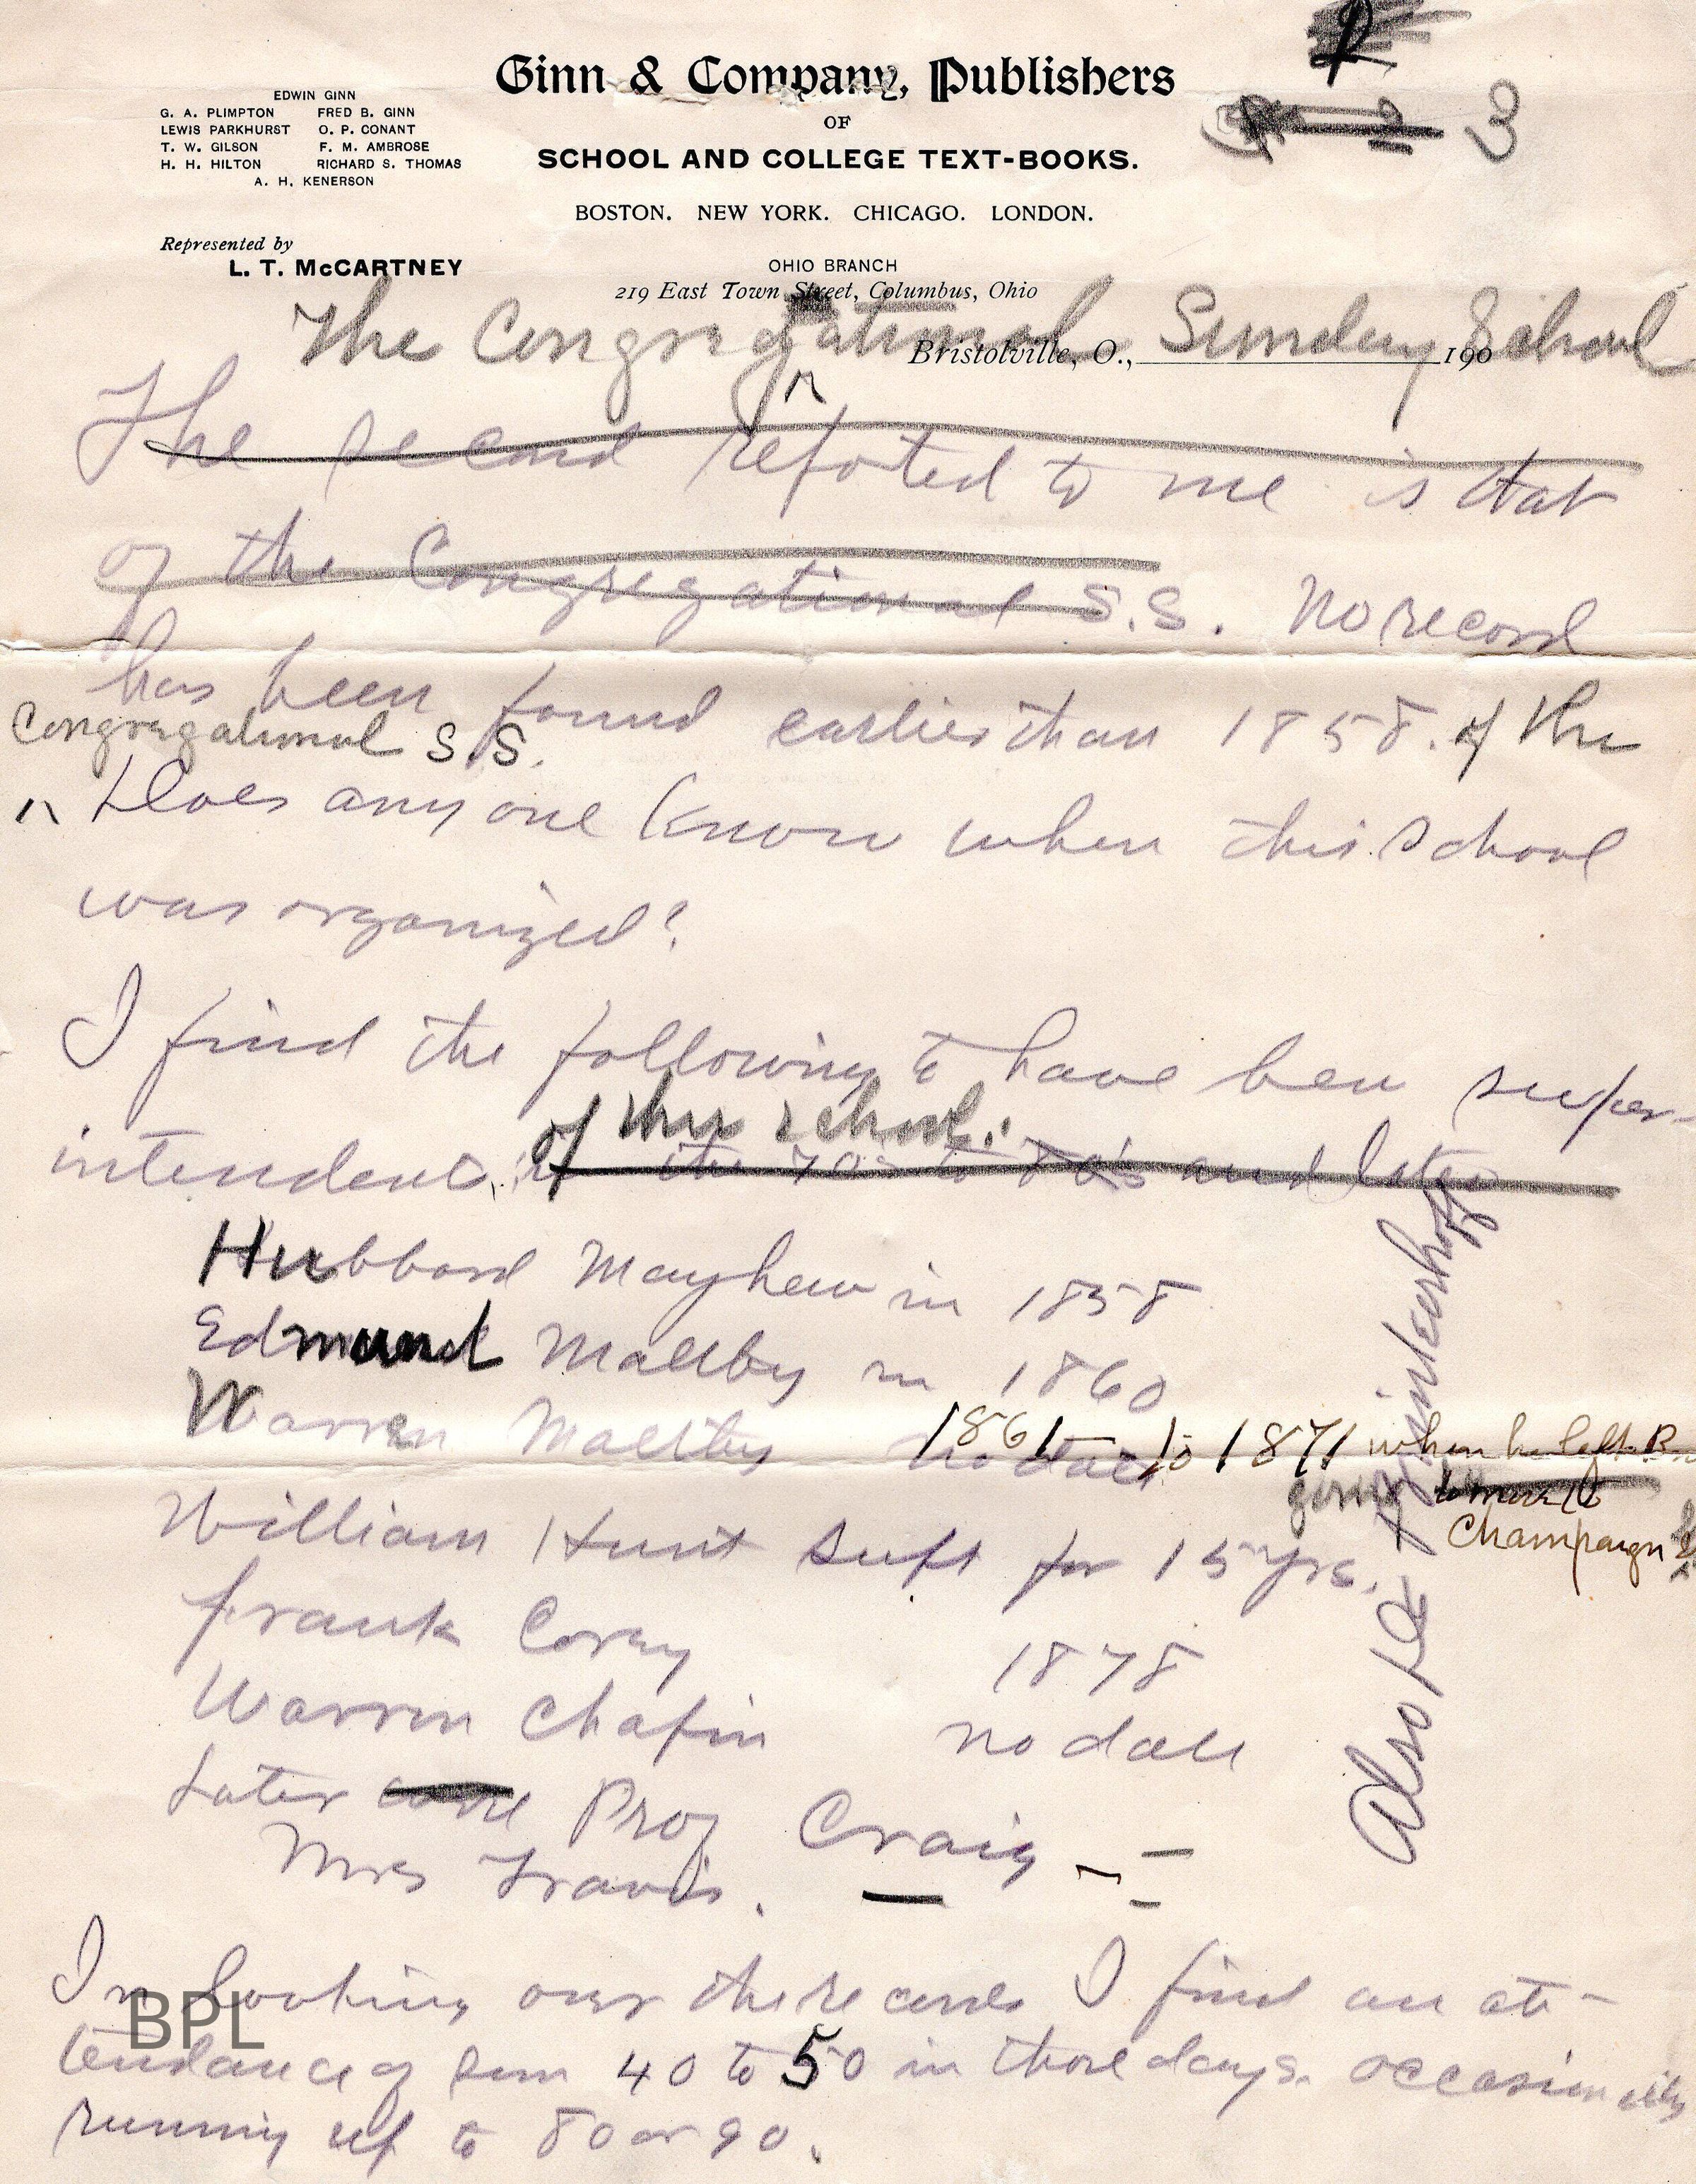 Ginn & Company, Publishers
OF
SCHOOL AND COLLEGE TEXT-BOOKS.
BOSTON. NEW YORK. CHICAGO. LONDON.
EDWIN GINN
G. A. PLIMPTON FRED B. GINN
LEWIS PARKHURST O. P. CONANT
T. W. GILSON F. M. AMBROSE
H. H. HILTON RICHARD S. THOMAS
A. H. KENERSON
Represented by
L. T. McCARTNEY
OHIO BRANCH
219 East Town Street, Columbus, Ohio
3
Bristolville, O., 190
The Congregational Sunday School
The second refoted to me is that
of the Congregational S.S. No record
has been found earlier than 1858. of the
Congregational S.S.
Does any one know when this School
was organized?
I find the following to have been super-
intendent,
of this school.
in the 70s to 80's and later
Hubbard Mayhew in 1858
Edmund Maltby in 1860
Warren Maltby no date 1861 to 1871 when he left B
going to Champaign
William Hunt supt for 15 yrs.
Frank Corey 1878
Warren Chapin no date
Later Prof Craig
Mrs Travis.
Also Brinkerhoff
In looking over the records I find an at-
tendance of from 40 to 50 in those days. occasionally
running up to 80 or 90.
BPL